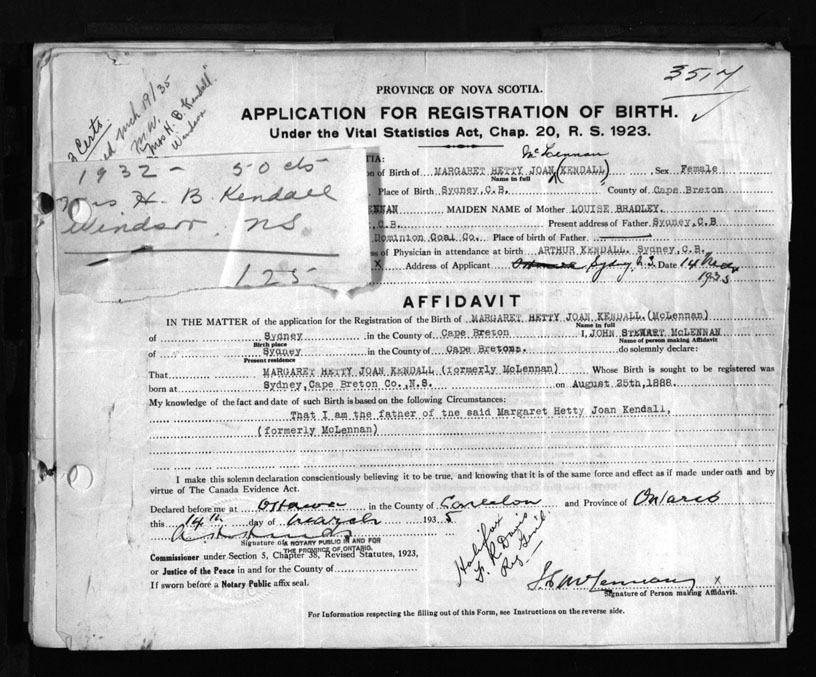 3517
PROVINCE OF NOVA SCOTIA.
APPLICATION FOR REGISTRATION OF BIRTH.
Under the Vital Statistics Act, Chap. 20, R. S. 1923.
3 Certs.
Mch 19/35
Mrs H. B. Kendall
Windsor
1932 - 50 cts
Mrs H. B. Kendall
Windsor, N.S.
125
TIA:
McLennan
n of Birth of MARGARET HETTY JOAN (KENDALL) Sex Female
Name in full
Place of Birth Sydney, C.B. County of Cape Breton
LENNAN MAIDEN NAME of Mother LOUISE BRADLEY.
C.B. Present address of Father Sydney, C.B
Dominion Coal Co. Place of birth of Father
s of Physician in attendance at birth ARTHUR KENDALL. Sydney, C.B.
X Address of Applicant Sydney N.S. Date 14 Mch
1935
AFFIDAVIT
IN THE MATTER of the application for the Registration of the Birth of MARGARET HETTY JOAN KENDALL. (McLennan)
Name in full
of Sydney in the County of Cape Breton I, JOHN STEWART McLENNAN
Birth place Name of person making Affidavit
of Sydney in the County of Cape Bretonn. do solemnly declare:
Present residence
That MARGARET HETTY JOAN KENDALL (formerly McLennan) Whose Birth is sought to be registered was
born at Sydney, Cape Breton Co., N.S. on August 25th, 1888.
My knowledge of the fact and date of such Birth is based on the following Circumstances:
That I am the father of tne said Margaret Hetty Joan Kendall,
(formerly McLennan)
I make this solemn declaration conscientiously believing it to be true, and knowing that it is of the same force and effect as if made under oath and by
virtue of The Canada Evidence Act.
Declared before me at Ottawa in the County of Carleton and Province of Ontario
this 14th day of March 1935
Signature of A NOTARY PUBLIC IN AND FOR
THE PROVINCE OF ONTARIO.
Commissioner under Section 5, Chapter 38, Revised Statutes, 1923,
or Justice of the Peace in and for the County of
If sworn before a Notary Public affix seal.
Halifax
F. R. Davis
Reg. Genl.
J S McLennan X
Signature of Person making Affidavit.
For Information respecting the filling out of this Form, see Instructions on the reverse side.